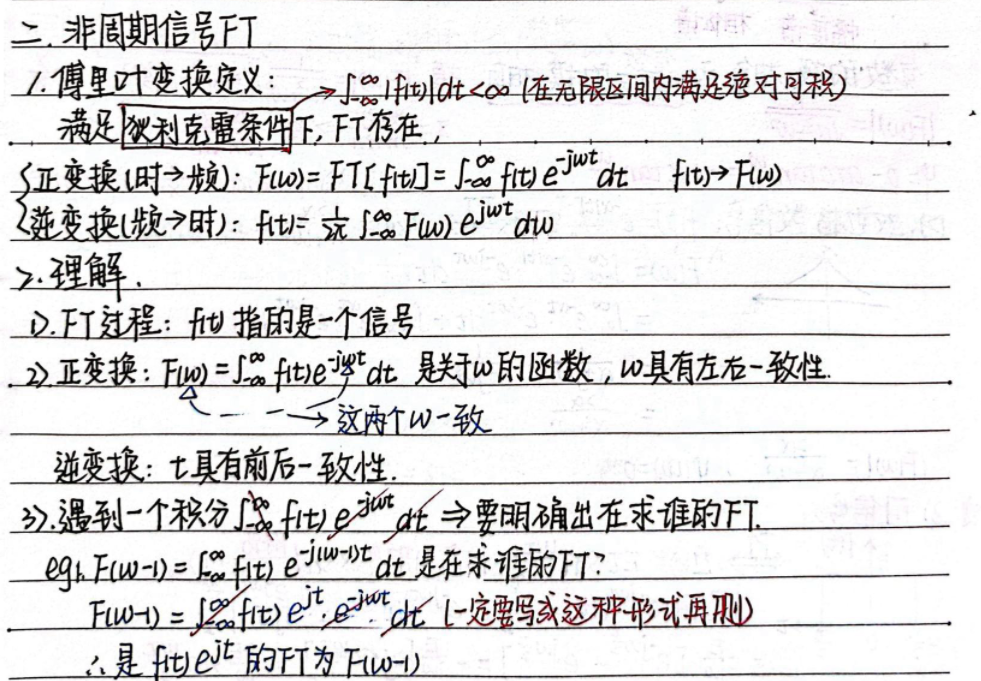 二. 非周期信号FT
1. 傅里叶变换定义: → ∫_{-∞}^{∞}|f(t)|dt<∞ (在无限区间内满足绝对可积)
满足狄利克雷条件下, FT存在.
{正变换(时→频): F(ω)= FT[f(t)] = ∫_{-∞}^{∞} f(t) e^{-jωt} dt f(t)→F(ω)
逆变换(频→时): f(t)= 1/2π ∫_{-∞}^{∞} F(ω) e^{jωt} dω
2. 理解.
1). FT过程: f(t) 指的是一个信号
2). 正变换: F(ω) = ∫_{-∞}^{∞} f(t) e^{-jωt} dt 是关于ω的函数, ω具有左右一致性.
→ 这两个ω一致
逆变换: t具有前后一致性.
3). 遇到一个积分 ∫_{-∞}^{∞} f(t) e^{-jωt} dt ⇒ 要明确出在求谁的FT.
eg1. F(ω-1) = ∫_{-∞}^{∞} f(t) e^{-j(ω-1)t} dt 是在求谁的FT?
F(ω-1) = ∫_{-∞}^{∞} f(t) e^{jt} · e^{-jωt} · dt (一定要写成这种形式再删)
∴ 是 f(t)e^{jt} 的FT为 F(ω-1)